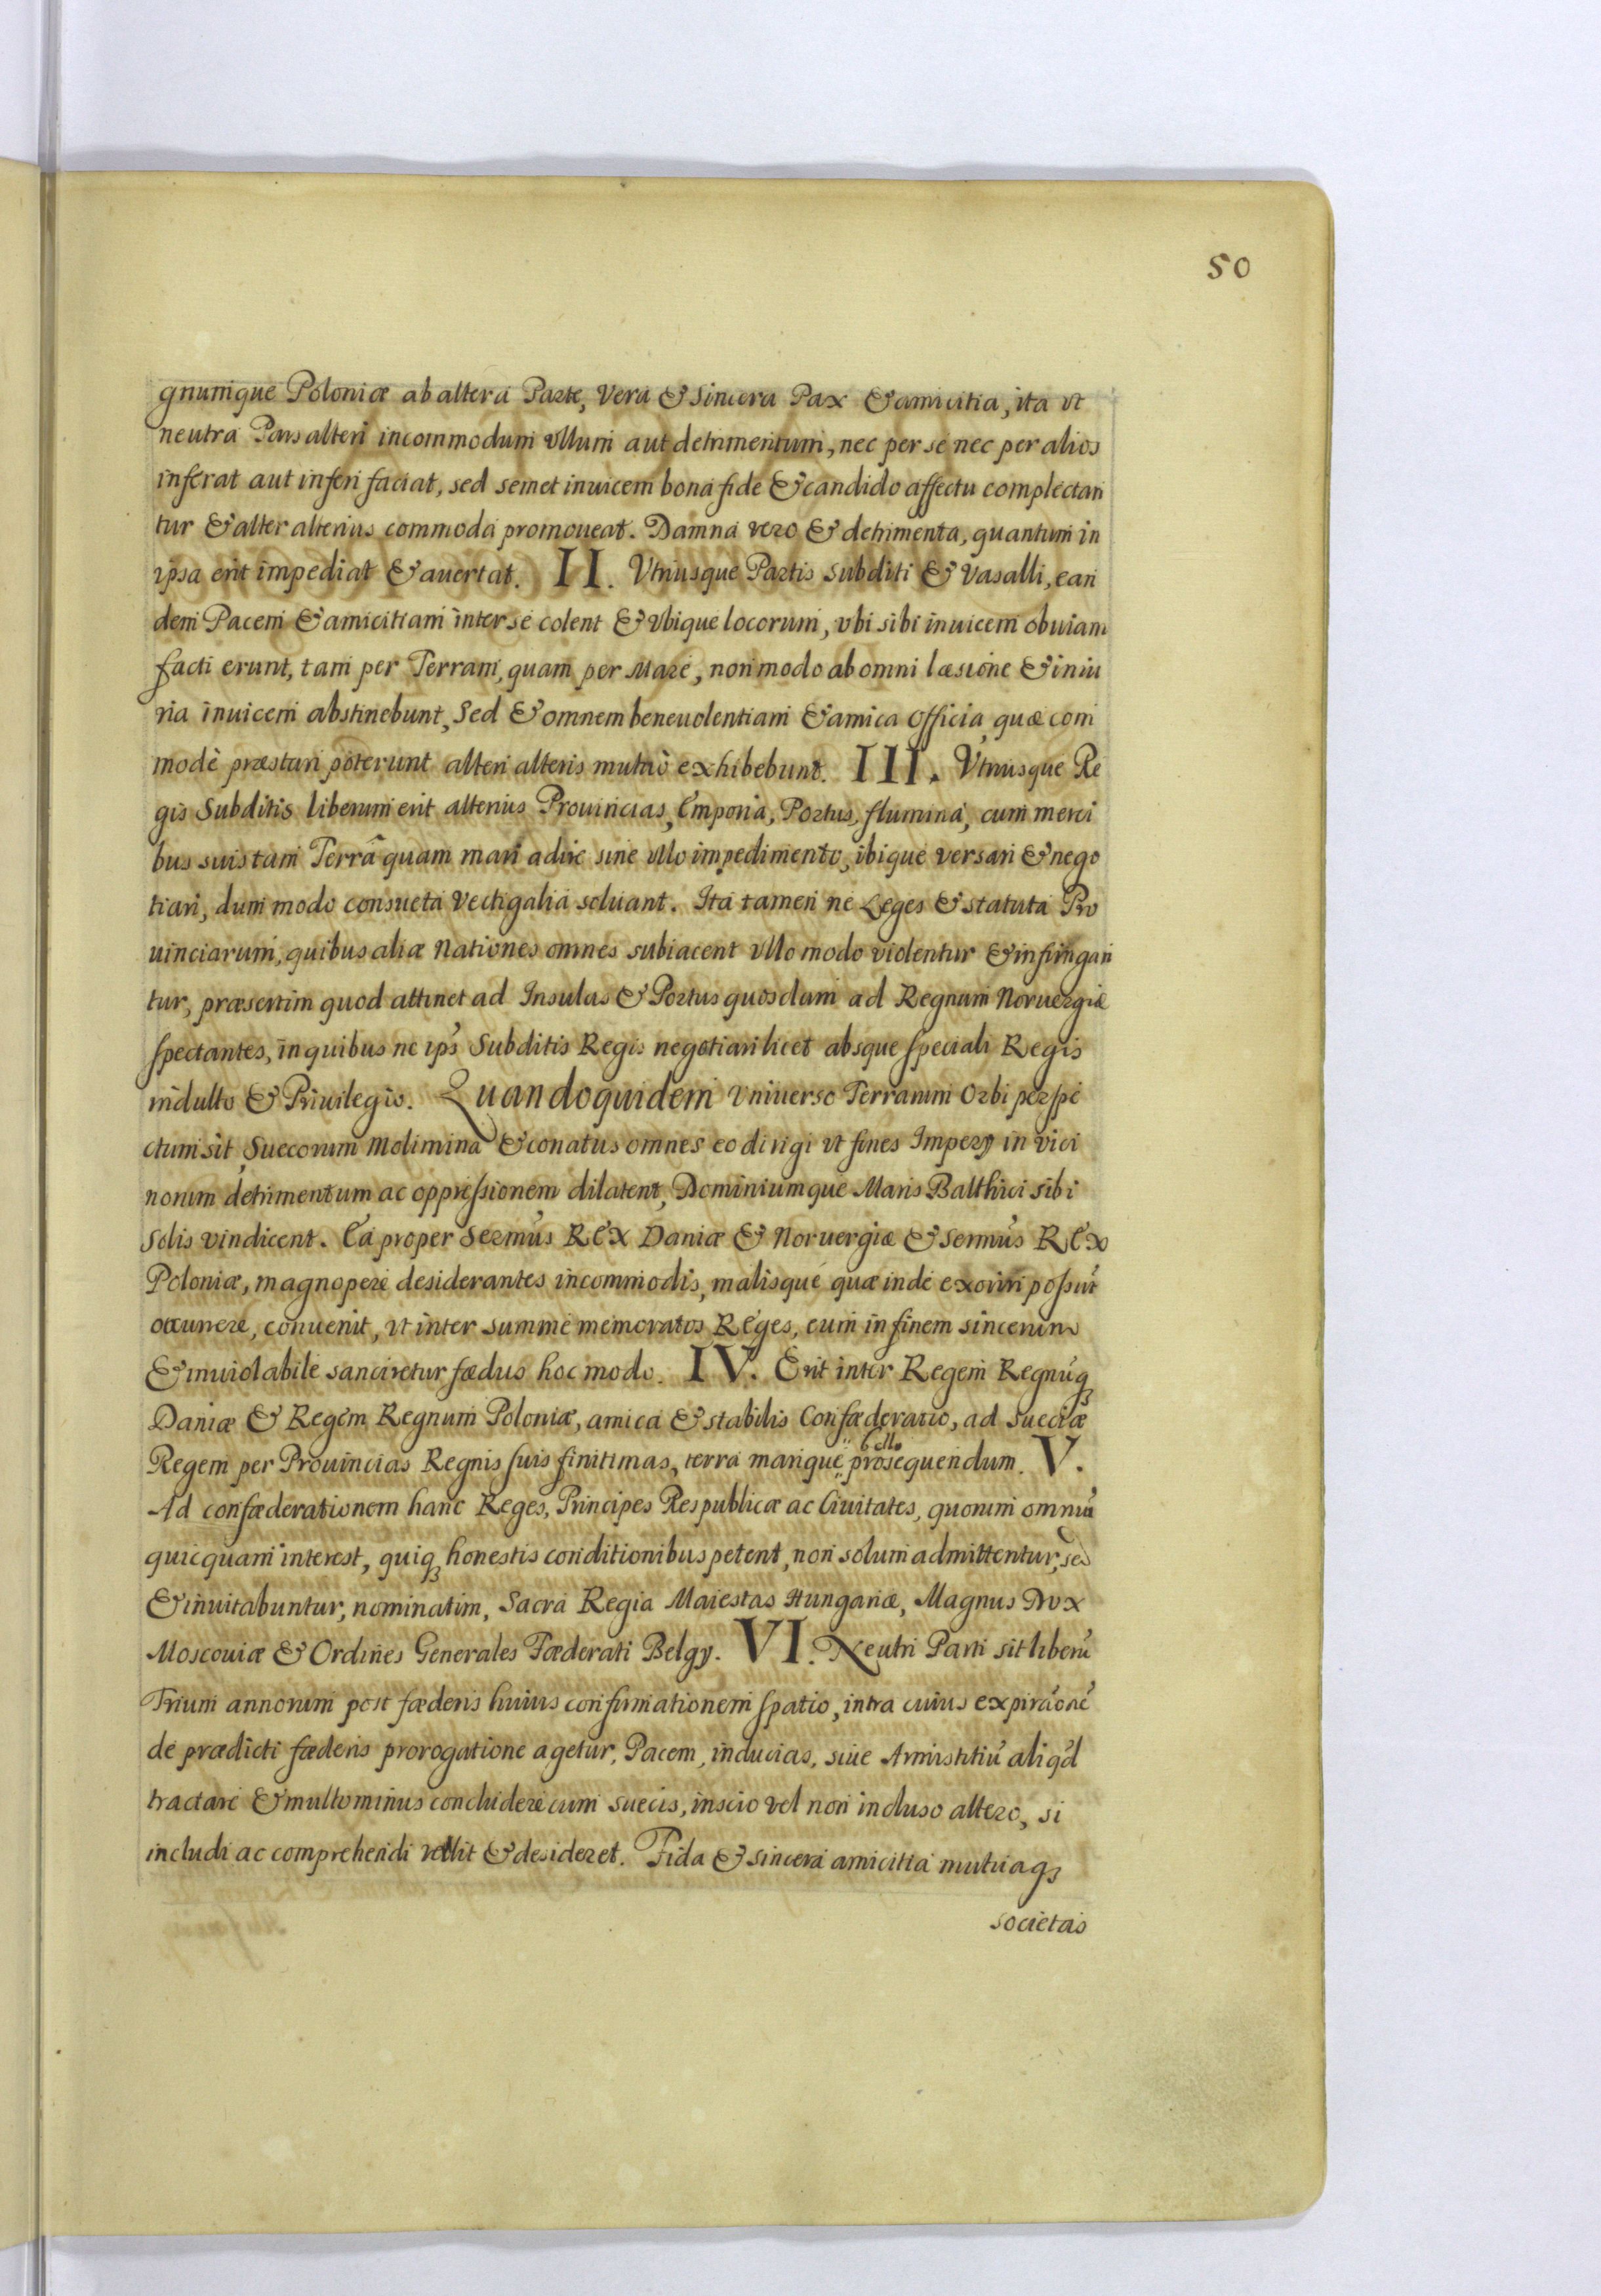 50
gnumque Poloniæ ab altera Parte, Vera & Sincera Pax & amicitia, ita vt
neutra Pars alteri incommodum vllum aut detrimentum, nec per se nec per alios
inferat aut inferi faciat, sed semet inuicem bona fide & candido affectu complectan
tur & alter alterius commoda promoueat. Damna vero & detrimenta, quantum in
ipsa erit impediat & auertat. II. Vtriusque Partis subditi & Vasalli, ean
dem Pacem & amicitiam inter se colent & vbique locorum, vbi sibi inuicem obuiam
facti erunt, tam per Terram, quam per Mare, non modo ab omni læsione & iniu
ria inuicem abstinebunt, Sed & omnem beneuolentiam & amica Officia quæ com
modè præstari poterunt alteri alteris mutuò exhibebunt. III. Vtriusque Re
gis Subditis liberum erit alterius Prouincias, Emporia, Portus, flumina, cum merci
bus suis tam Terrâ quam mari adire sine vllo impedimento, ibique versari & nego
tiari, dum modo consueta Vectigalia soluant. Ita tamen ne Leges & statuta Pro
uinciarum, quibus aliæ Nationes omnes subiacent vllo modo violentur & infringan
tur, præsertim quod attinet ad Insulas & Portus quosdam ad Regnum Noruergiæ
spectantes, in quibus ne ips̓ Subditis Regis negotiari licet absque speciali Regis
indulto & Priuilegio. Quandoquidem Vniuerso Terrarum Orbi perspe
ctum sit, Suecorum Molimina & conatus omnes eo dirigi vt fines Impery in vici
norum detrimentum ac oppressionem dilatent, Dominiumque Maris Balthici sibi
Solis vindicent. Ea proper Sermus̓ REX Daniæ & Noruergiæ & Sermus̓ REX
Poloniæ, magnopere desiderantes incommodis, malisque quæ inde exoriri possūt
occurrere, conuenit, vt inter summe memoratos REges, eum in finem sincerum
& inuiolabile sanciretur fædus hoc modo. IV. Erit inter Regem Regnūq3
Daniæ & Regem Regnum Poloniæ, amica & stabilis Confæderatio, ad Sueciæ
Regem per Prouincias Regnis suis finitimas, terra marique bello prosequendum. V.
Ad confæderationem hanc Reges, Principes Respublicæ ac Ciuitates, quorum omniū
quicquam interest, quiq3 honestis conditionibus petent, non solum admittentur, sed
& inuitabuntur, nominatim, Sacra Regia Maiestas Hungariæ, Magnus Dux
Moscouiæ & Ordines Generales Fæderati Belgy. VI. Neutri Parti sit liberū
Trium annorum post fæderis huius confirmationem spatio, intra cuius expirāonē
de prædicti fæderis prorogatione agetur, Pacem, inducias, siue Armistitiū aliqd̓
tractare & multo minus concludere cum Suecis, inscio vel non incluso altero, si
includi ac comprehendi vellit & desideret. Fida & sincera amicitia mutuaq3
societas